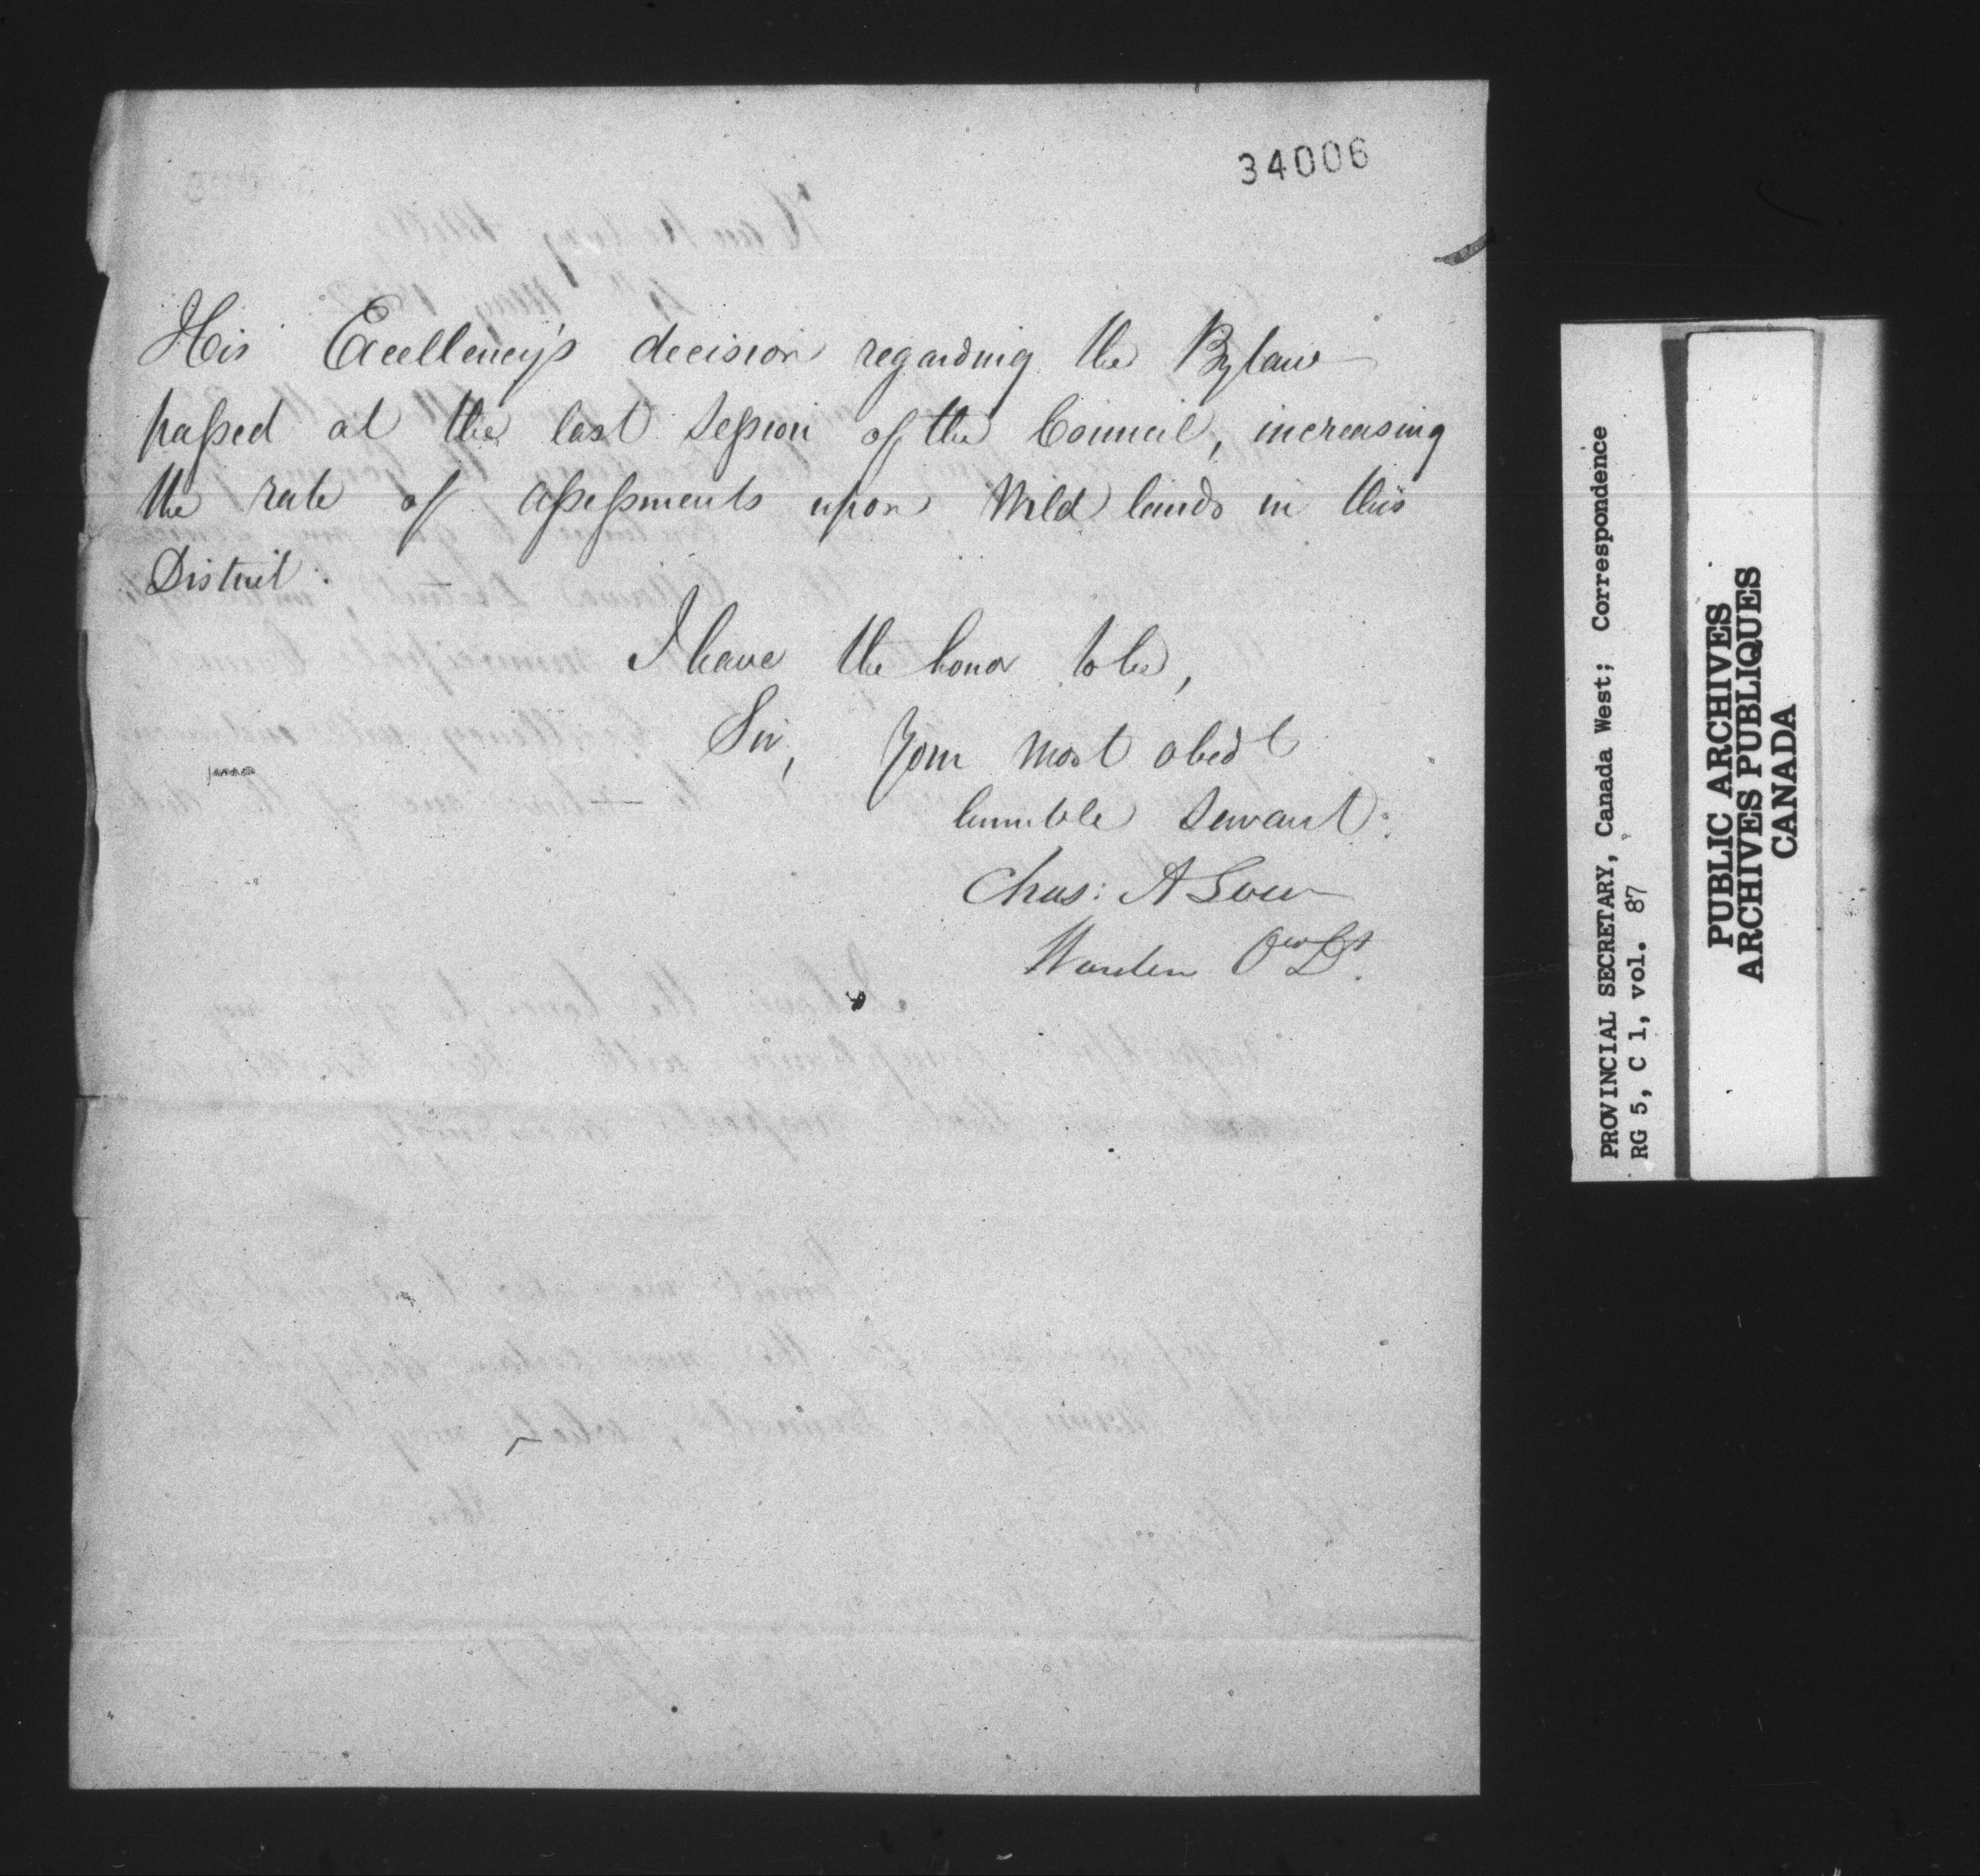 34006
His Excellency's decision regarding the Bylaw
passed at the last Session of the Council, increasing
the rate of assessments upon Wild lands in this
District.
I have the honor to be,
Sir, Your most obedt
humble Servant.
Chas: A Low
Warden Ow Dt.
PROVINCIAL SECRETARY, Canada West; Correspondence
RG 5, C 1, vol. 87
PUBLIC ARCHIVES
ARCHIVES PUBLIQUES
CANADA